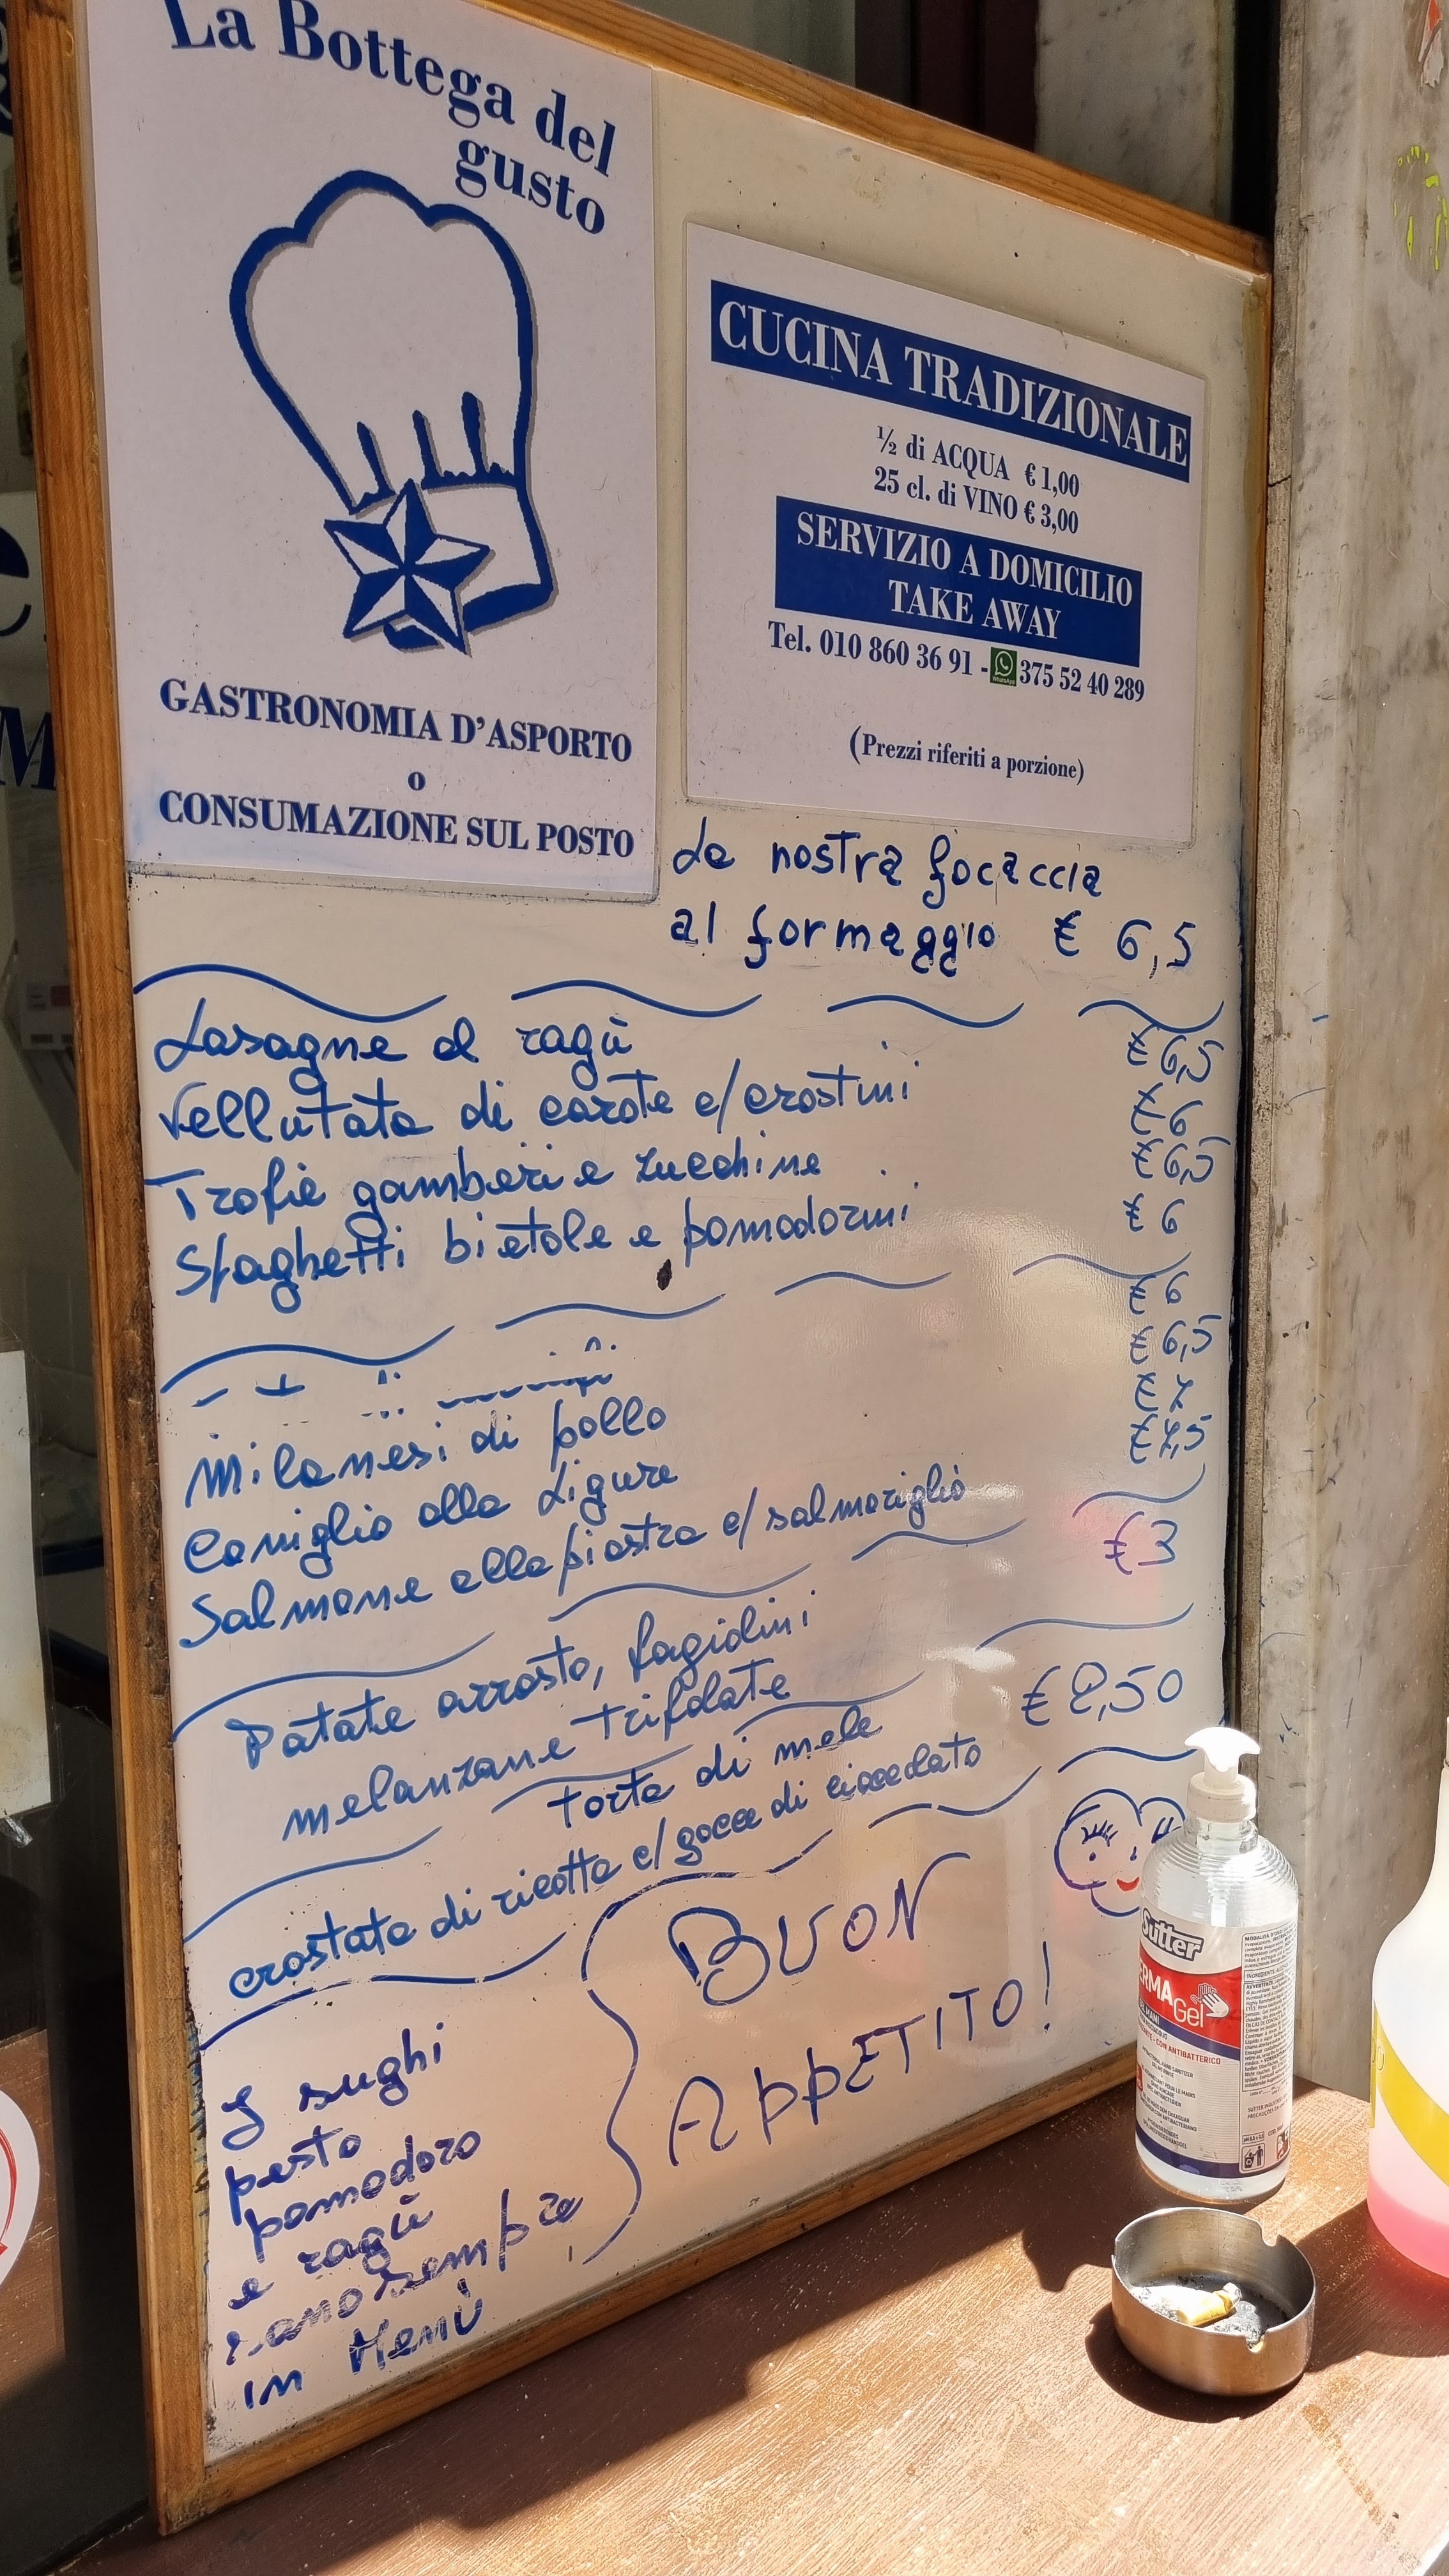 La Bottega del
gusto
GASTRONOMIA D'ASPORTO
o
CONSUMAZIONE SUL POSTO
CUCINA TRADIZIONALE
½ di ACQUA € 1,00
25 cl. di VINO € 3,00
SERVIZIO A DOMICILIO
TAKE AWAY
Tel. 010 860 36 91 - 375 52 40 289
(Prezzi riferiti a porzione)
La nostra focaccia
al formaggio € 6,5
Lasagne al ragù € 6,5
Vellutata di carote c/crostini € 6
Trofie gamberi e zucchine € 6,5
Spaghetti bietole e pomodorini € 6
€ 6
Milanesi di pollo € 6,5
Coniglio alla Ligure € 7
Salmone alla piastra c/salmoriglio € 7,5
Patate arrosto, fagiolini € 3
melanzane trifolate
torta di mele € 2,50
crostata di ricotta c/gocce di cioccolato
I sughi
pesto
pomodoro
e ragù
sempre
in Menù
BUON
APPETITO!
Sutter
ERMA
Gel